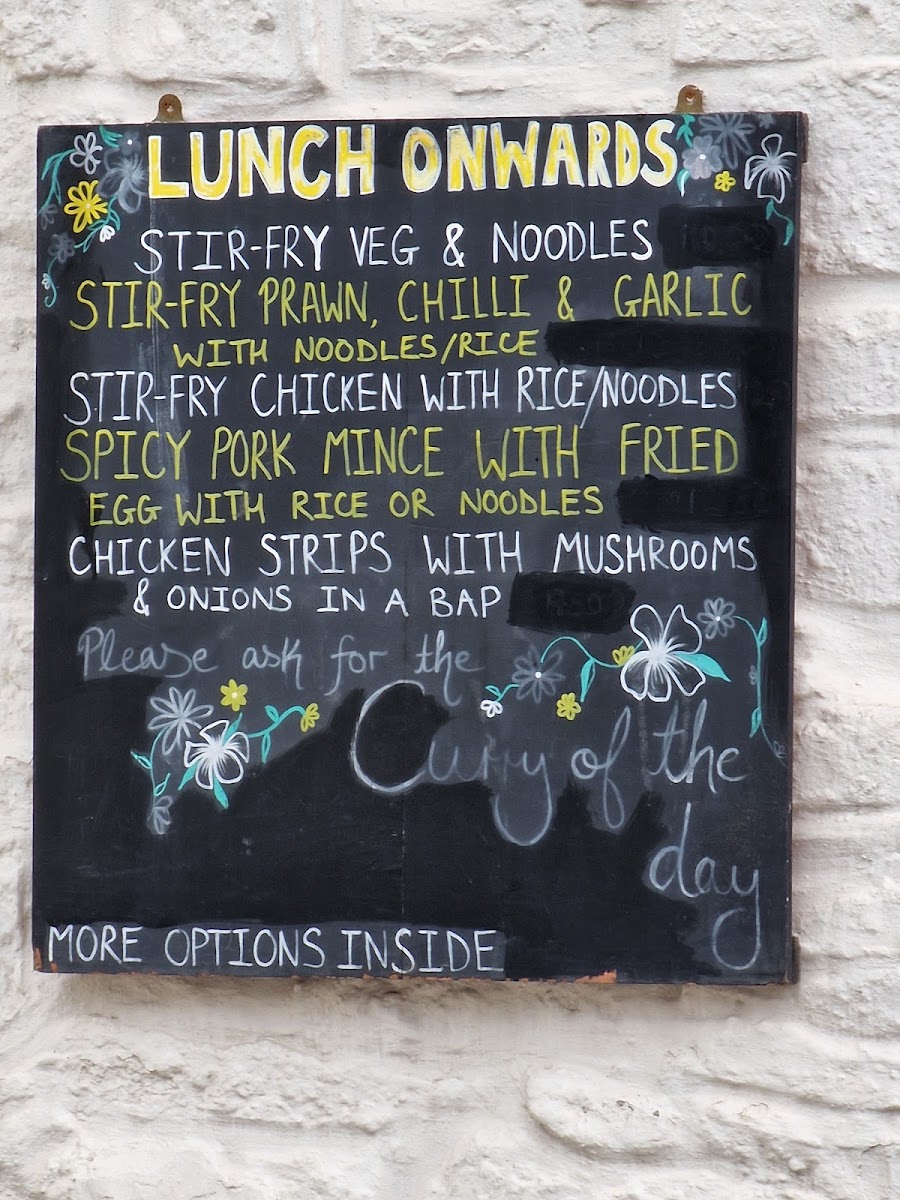 LUNCH ONWARDS
STIR-FRY VEG & NOODLES
STIR-FRY PRAWN, CHILLI & GARLIC
WITH NOODLES/RICE
STIR-FRY CHICKEN WITH RICE/NOODLES
SPICY PORK MINCE WITH FRIED
EGG WITH RICE OR NOODLES
CHICKEN STRIPS WITH MUSHROOMS
& ONIONS IN A BAP
Please ask for the
Curry of the
day
MORE OPTIONS INSIDE